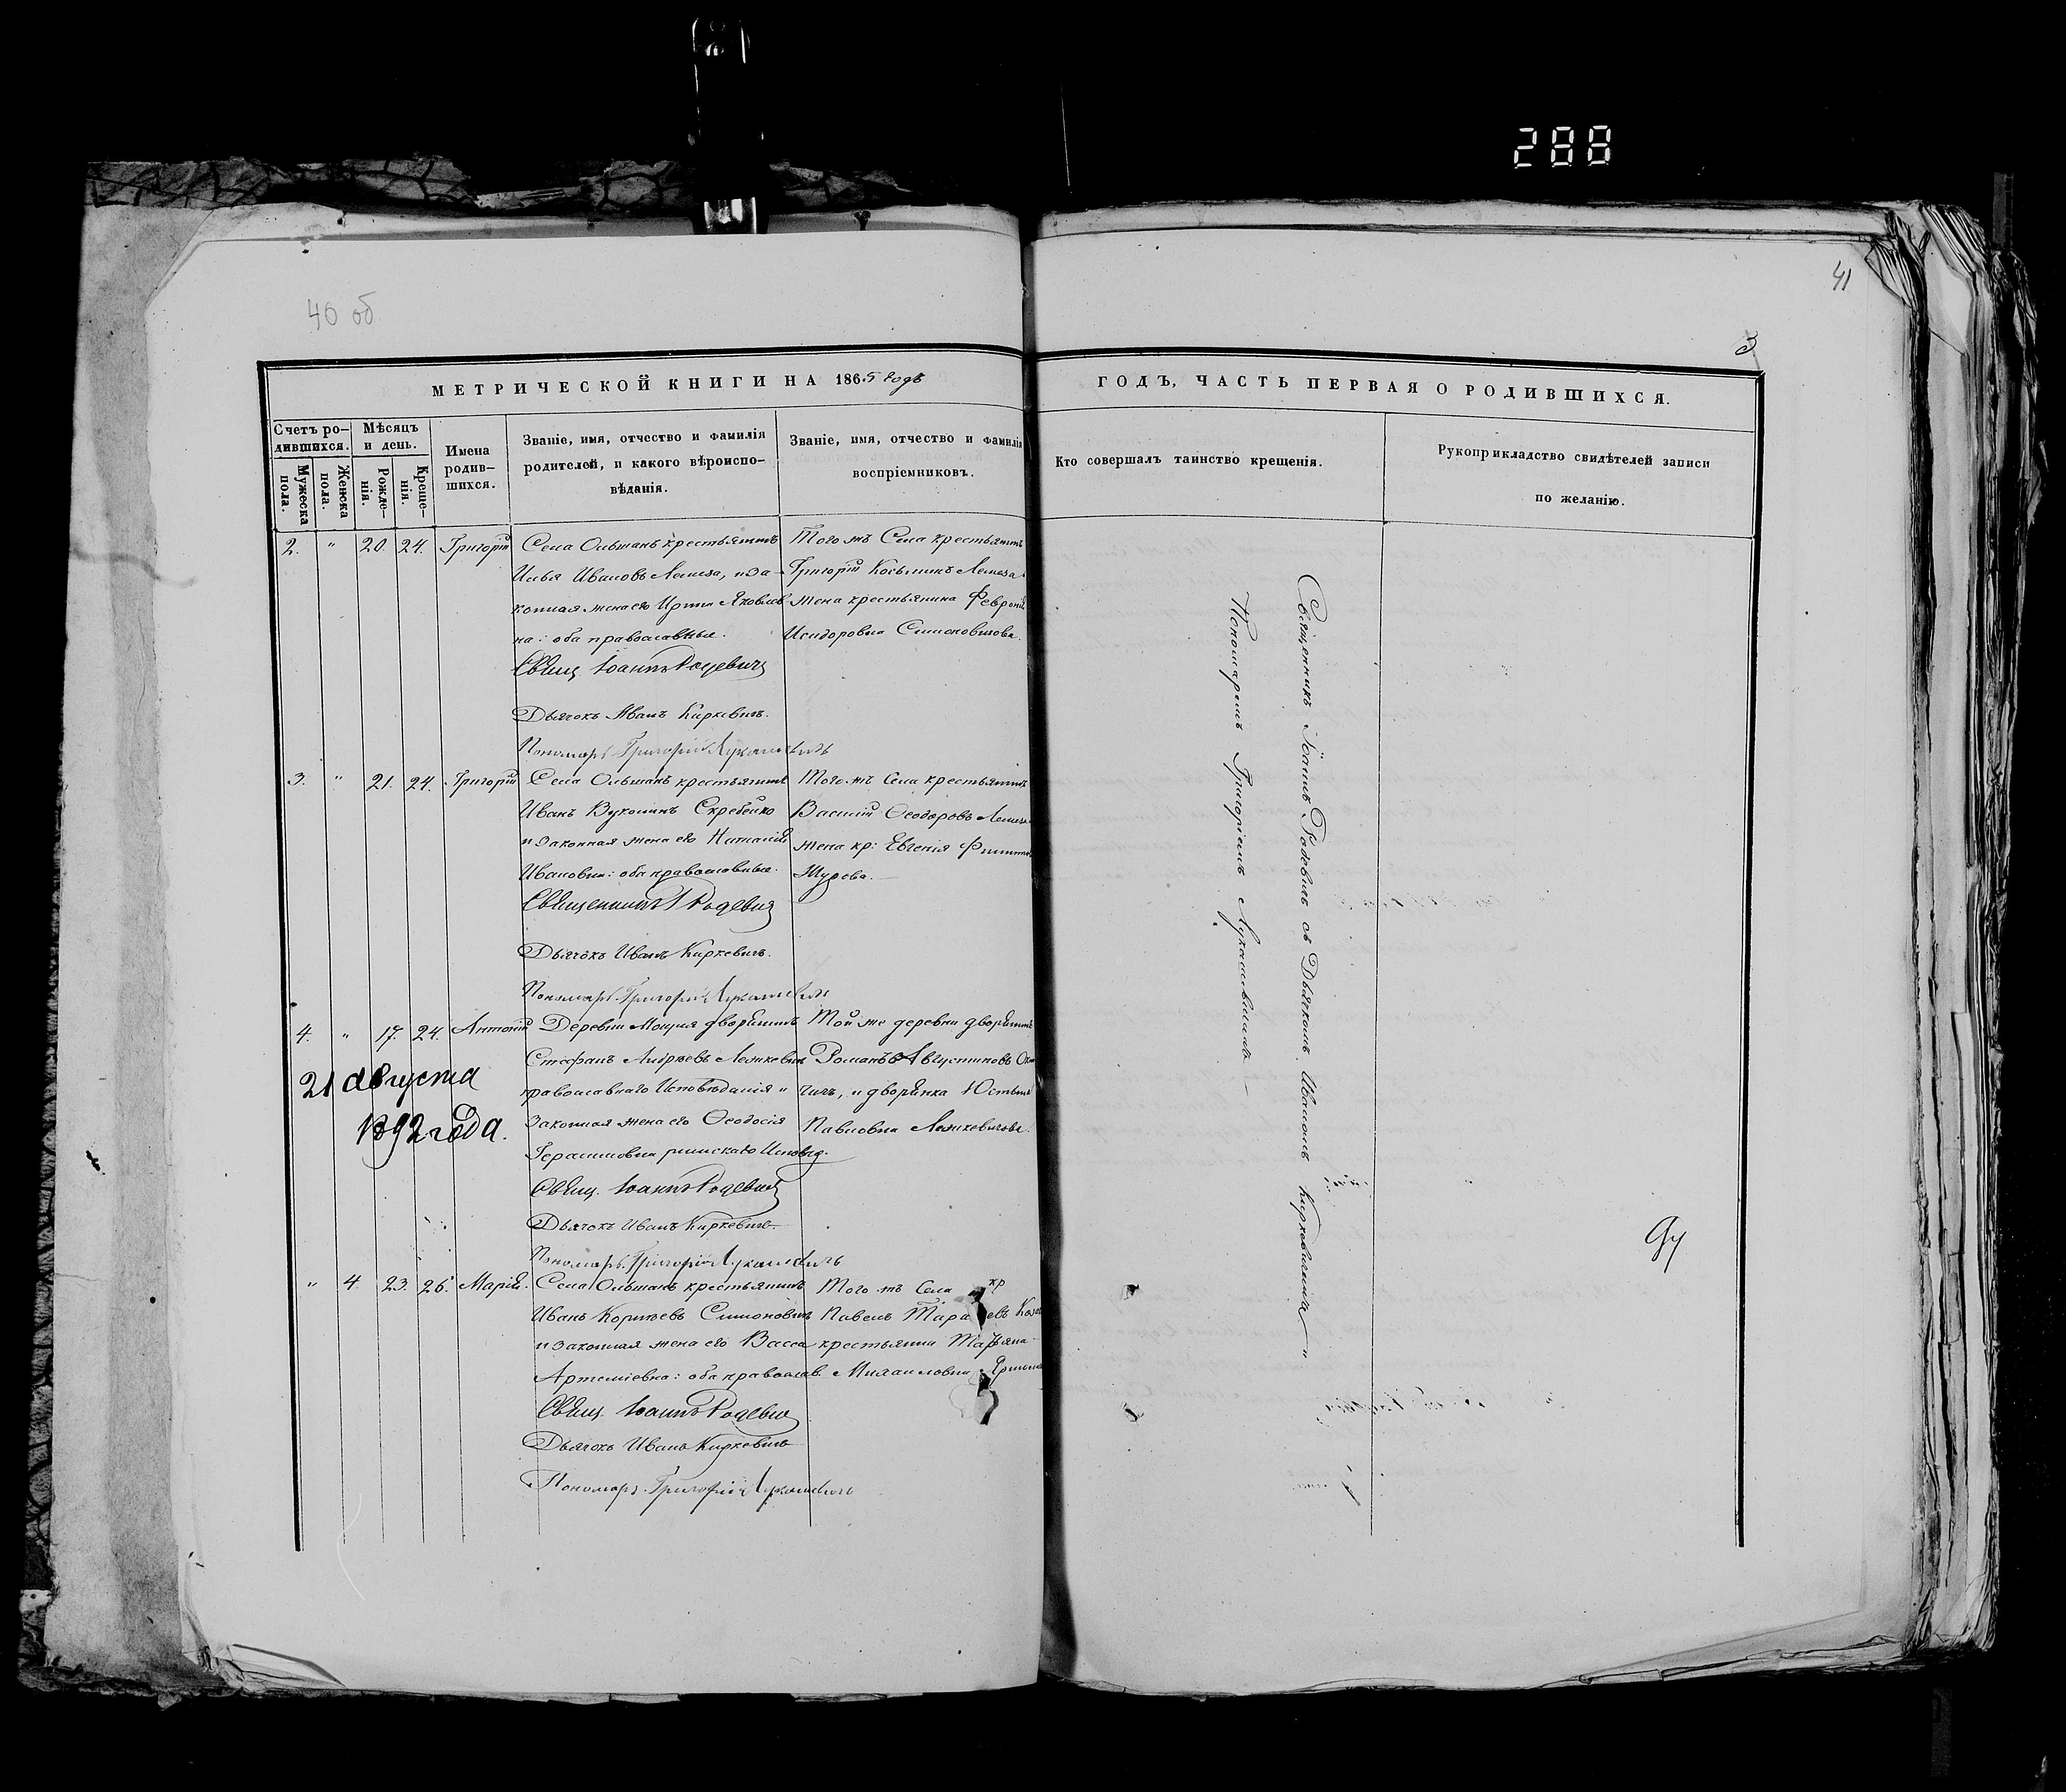 288
40 об
41
3
МЕТРИЧЕСКОЙ КНИГИ НА 1865 годъ
ГОДЪ, ЧАСТЬ ПЕРВАЯ О РОДИВШИХСЯ.
Счетъ родившихся.
Мужеска пола.
Женска пола.
Мѣсяцъ и день.
Рожденія.
Крещенія.
Имена родившихся.
Званіе, имя, отчество и фамилія родителей, и какого вѣроисповѣданія.
Званіе, имя, отчество и фамилія воспріемниковъ.
Кто совершалъ таинство крещенія.
Рукоприкладство свидѣтелей записи по желанію.
2. " 20. 24. Григорій
Села Ольшанъ крестьянинъ
Илья Ивановъ Лемеза, и за-
конная жена его Ирина Яковлев-
на: оба православные.
Свящ Іоаннъ Родевичъ
Дьячокъ Иванъ Киркевичъ.
Пономарь Григорій Лукашевичъ
Того жъ Села крестьянинъ
Григорій Косьминъ Лемеза
жена крестьянина Февронія
Исидоровна Симоновичова.
3. " 21. 24. Григорій
Села Ольшанъ крестьянинъ
Иванъ Вуколинъ Скребейко
и законная жена его Наталія
Ивановна: оба православные.
Священникъ І Родевичъ
Дьячокъ Иванъ Киркевичъ.
Пономарь Григорій Лукашевичъ
Того жъ Села крестьянинъ
Василій Ѳеодоровъ
жена кр: Евгенія
Журова.
4. " 17. 24. Антоній
21 августа
1892 года.
Деревни дворянинъ
Стефанъ Андреевъ Лемкевичъ
православнаго Исповѣданія и
законная жена его Ѳеодосія
Герасимовна римскаго Исповѣд.
Свящ. Іоаннъ Родевичъ
Дьячокъ Иванъ Киркевичъ.
Пономарь Григорій Лукашевичъ
Той же деревни дворянинъ
Романъ Августиновъ
и дворянка
Павловна Лемкевичова.
" 4. 23. 26. Марія.
Села Ольшанъ крестьянинъ
Иванъ Корнѣевъ Симоновичъ
и законная жена его Васса
Артеміевна: оба православ.
Свящ. Іоаннъ Родевичъ
Дьячокъ Иванъ Киркевичъ
Пономарь Григорій Лукашевичъ
Того жъ Села кр
Павелъ
крестьянина Марьяна
Михаиловна
Священникъ Іоаннъ Родевичъ съ Дьячкомъ Иваномъ Киркевичемъ и
Пономаремъ Григоріемъ Лукашевичемъ